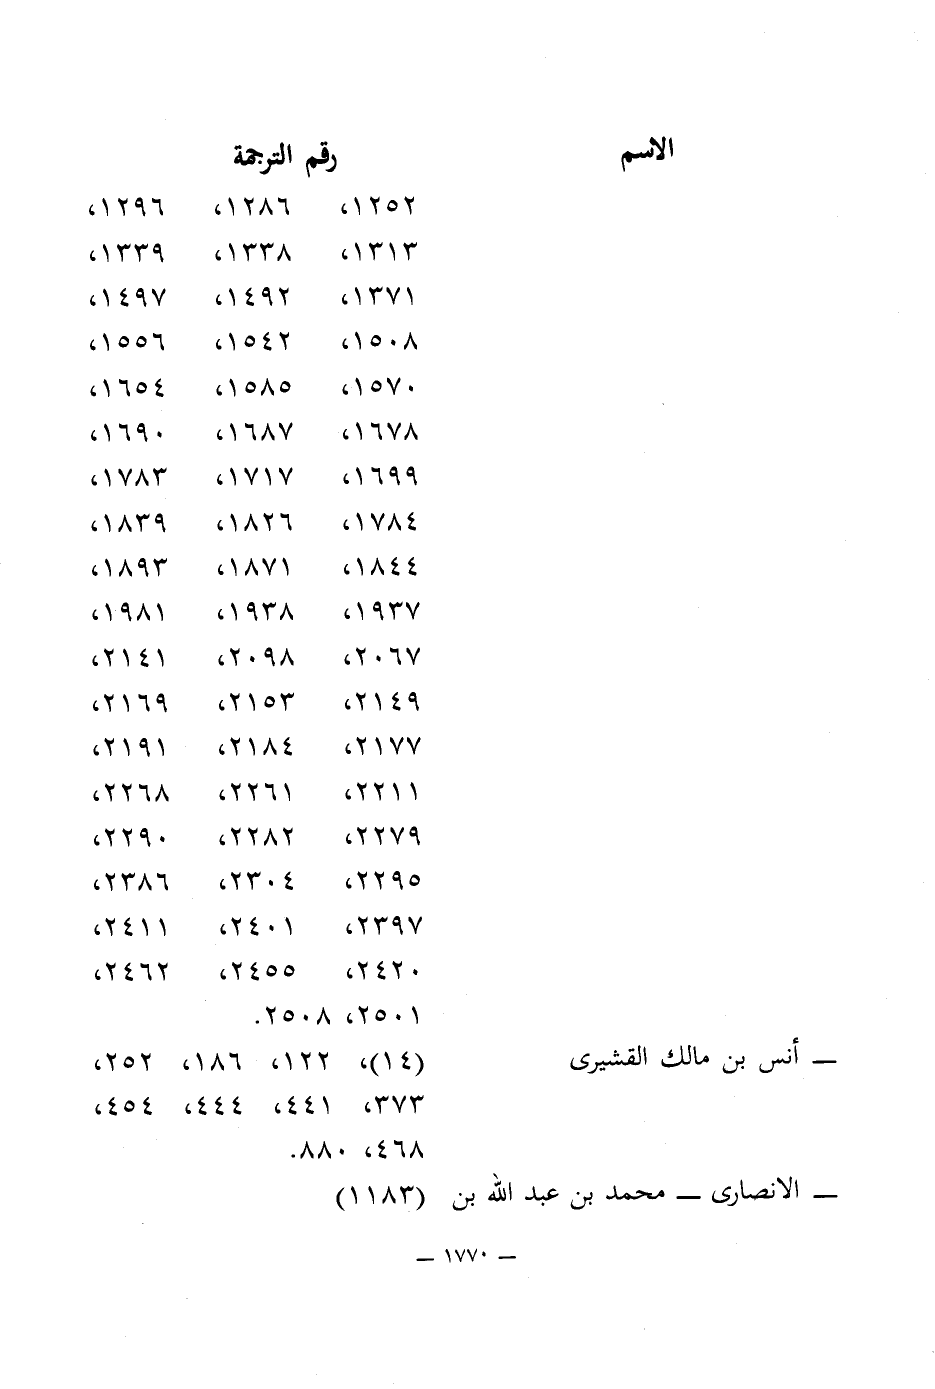 الاسم رقم الترجمة
١٢٥٢، ١٢٨٦، ١٢٩٦،
١٣١٣، ١٣٣٨، ١٣٣٩،
١٣٧١، ١٤٩٢، ١٤٩٧،
١٥٠٨، ١٥٤٢، ١٥٥٦،
١٥٧٠، ١٥٨٥، ١٦٥٤،
١٦٧٨، ١٦٨٧، ١٦٩٠،
١٦٩٩، ١٧١٧، ١٧٨٣،
١٧٨٤، ١٨٢٦، ١٨٣٩،
١٨٤٤، ١٨٧١، ١٨٩٣،
١٩٣٧، ١٩٣٨، ١٩٨١،
٢٠٦٧، ٢٠٩٨، ٢١٤١،
٢١٤٩، ٢١٥٣، ٢١٦٩،
٢١٧٧، ٢١٨٤، ٢١٩١،
٢٢١١، ٢٢٦١، ٢٢٦٨،
٢٢٧٩، ٢٢٨٢، ٢٢٩٠،
٢٢٩٥، ٢٣٠٤، ٢٣٨٦،
٢٣٩٧، ٢٤٠١، ٢٤١١،
٢٤٢٠، ٢٤٥٥، ٢٤٦٢،
٢٥٠١، ٢٥٠٨.
— أنس بن مالك القشيرى (١٤)، ١٢٢، ١٨٦، ٢٥٢،
٣٧٣، ٤٤١، ٤٤٤، ٤٥٤،
٤٦٨، ٨٨٠.
— الانصارى — محمد بن عبد الله بن (١١٨٣)
— ١٧٧٠ —